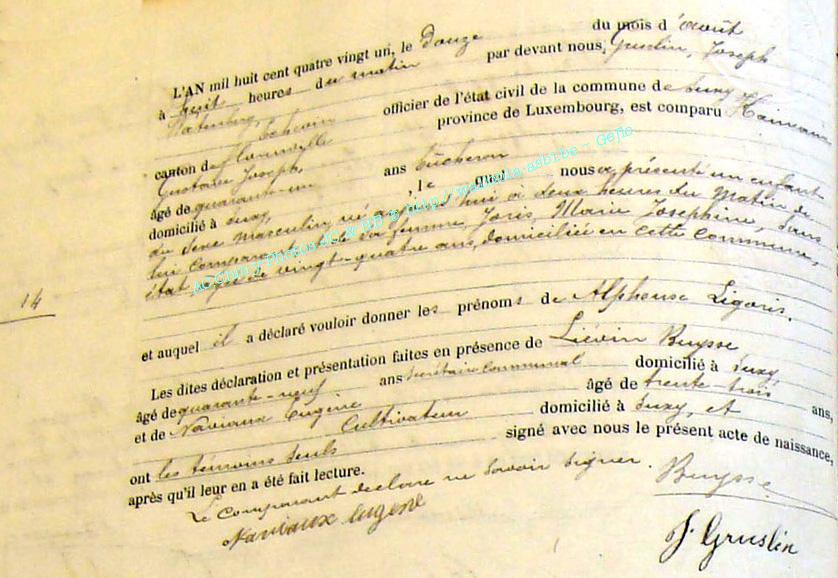 L'AN mil huit cent quatre vingt un, le douze du mois d'août
à huit heures du matin par devant nous, Gruslin, Joseph
échevin officier de l'état civil de la commune de Suxy
canton de Florenville province de Luxembourg, est comparu Hainaux
Gustave Joseph,
âgé de quarante-un ans bûcheron
domicilié à Suxy, lequel nous a présenté un enfant
du sexe masculin né aujourd'hui à deux heures du matin de
lui comparant et de sa femme, Joris, Marie Josephine, sans
état, âgée de vingt-quatre ans, domiciliée en cette commune,
14
et auquel il a déclaré vouloir donner les prénoms de Alphonse Ligoris.
Les dites déclaration et présentation faites en présence de Liévin Buysse
âgé de quarante-neuf ans secrétaire communal domicilié à Suxy,
et de Naviaux Eugène âgé de trente-trois ans,
Cultivateur domicilié à Suxy, et
ont les témoins seuls signé avec nous le présent acte de naissance,
après qu'il leur en a été fait lecture.
Le comparant déclare ne savoir signer.
Buysse
Naviaux Eugène
J. Gruslin